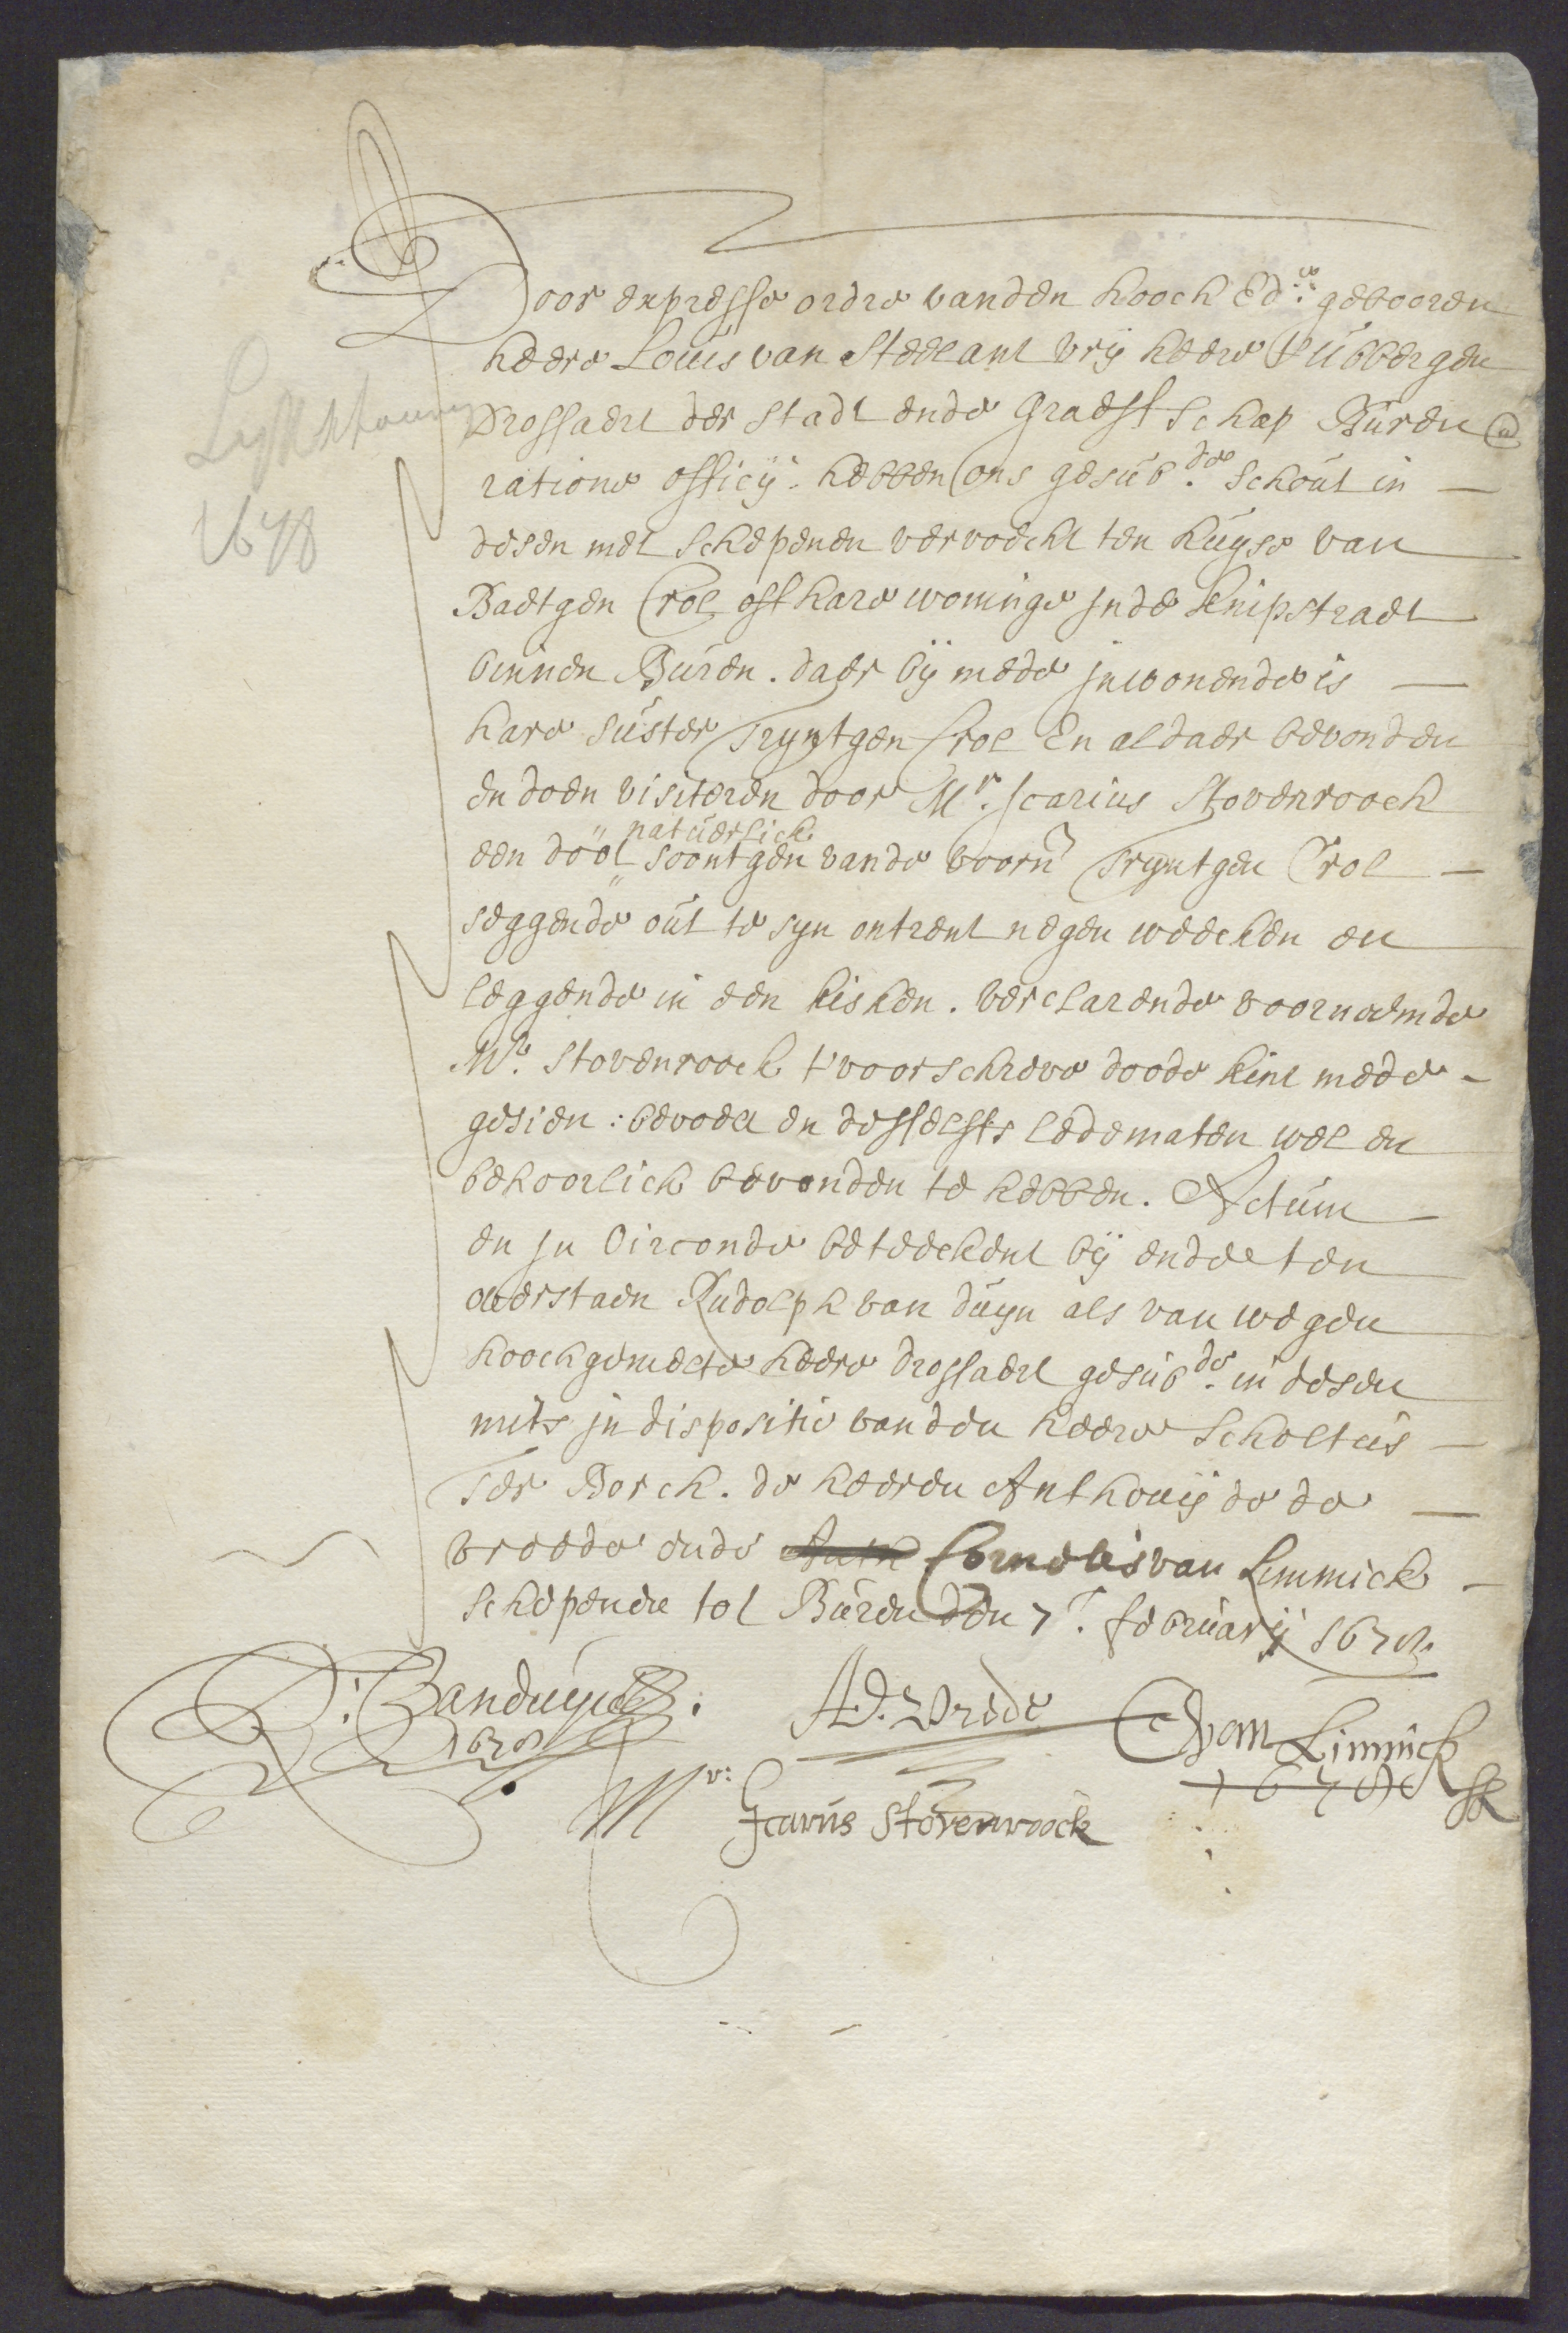 Door expresse ordre vanden hooch Ed:le gebooren
heere Louis van Steelant vrij heere t' Ubbergen
Drossaert der stadt ende graeffschap Buren
ratione officij. hebben ons gesub.de Schout in
desen met schepenen vervoecht ten huyse van
Baetgen Crol oft hare woninge inde knipstraet
binnen Buren. daer bij mede inwonende is
hare suster Tryntgen Crol En aldaer bevonden
en doen visiteren door Mr. Icarius Stovenroock
een doot natuerlick soontgen vande voorn Tryntgen Crol
seggende out te syn ontrent negen weecken en
leggende in een kisken. verclarende voornoemde
Mr. Stovenroock t'voorschreve doode kint mede
gesien: bevoelt en desselfts ledematen wel en
behoorlick bevonden te hebben. Actum
en in Oirconde beteeckent bij ende ten
overstaen Rudolph van Duyn als van wegen
hoochgemelte heere drossaert gesub.de in desen
mits indispositie vanden heere Scholtus
Ter Borch. de heeren Anthonij de de
vreede ende Cornelis van Limmick
schepenen tot Buren den 7. february 1678.
R: Vanduyn
1678
AD. Vrede
C van Limmick
1678
Mr: Icarius Stovenroock
Lyfschouwing
1678